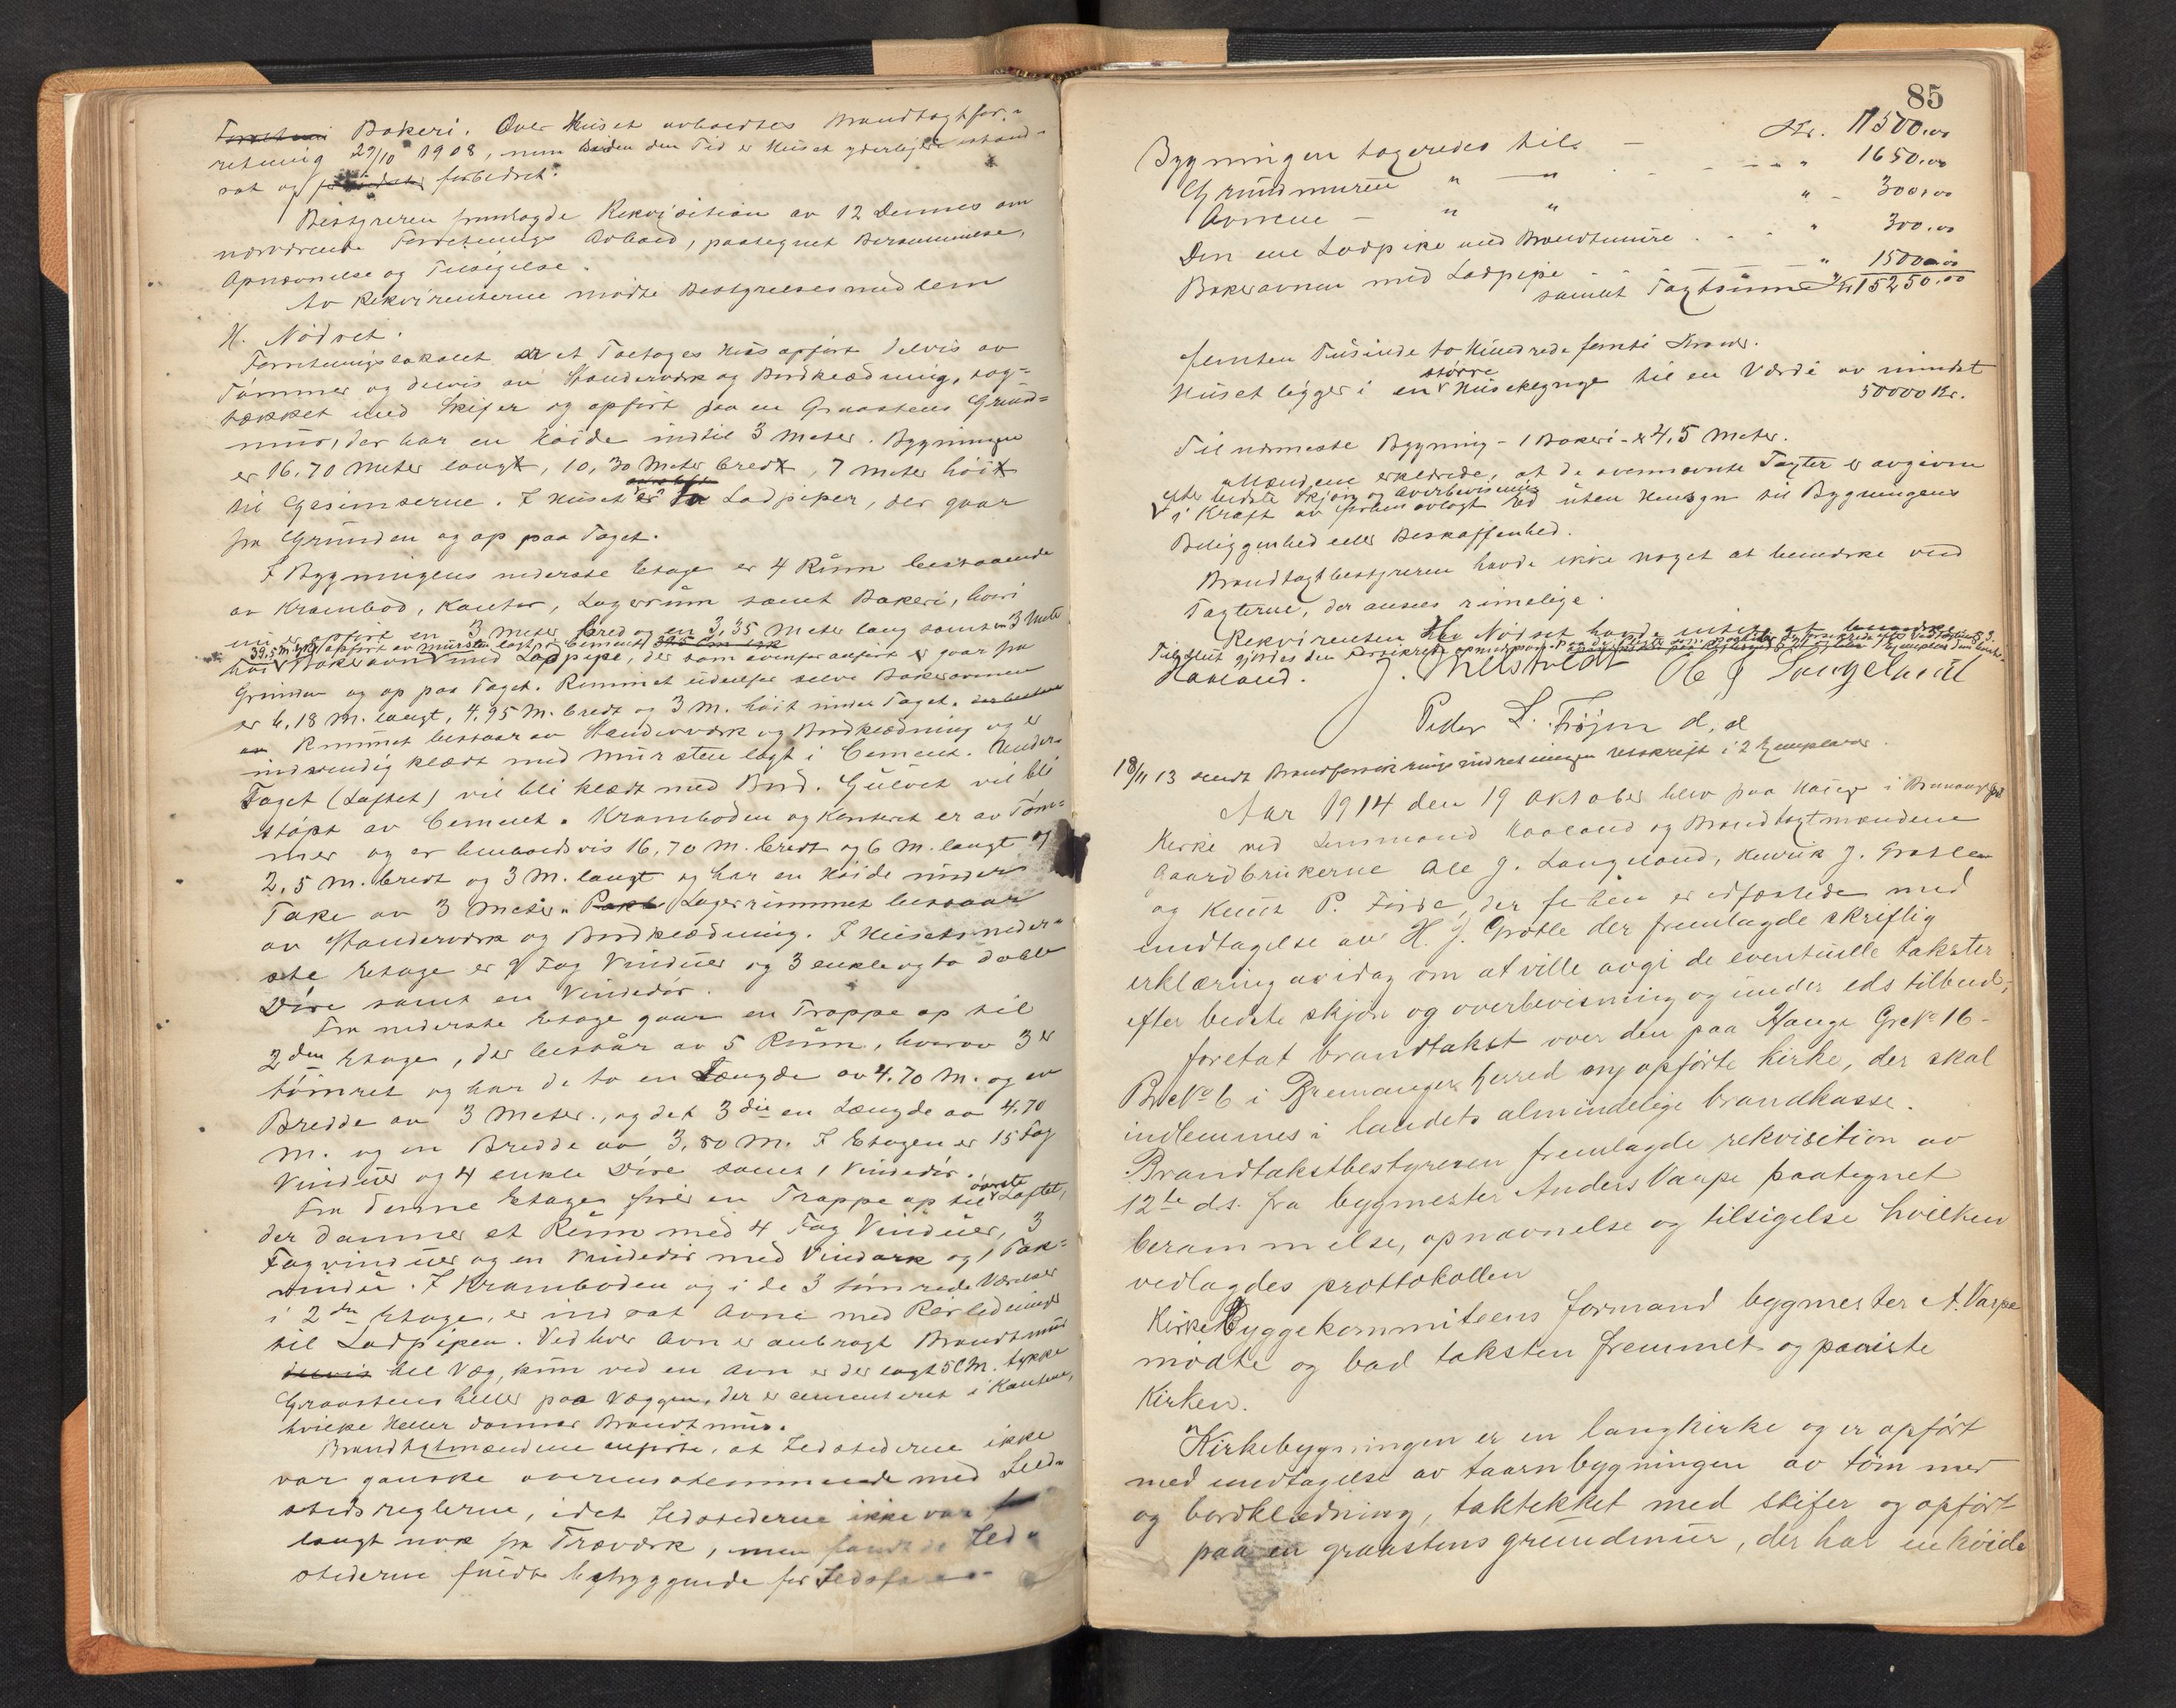 Bakeri. Over Huset avholdtes Brandtagtfor-
retning 29/10 1908, men siden den Tid er Huset yderligere istand-
sat og forbedret.
Bestyreren fremlagde Rekvisition av 12 Dennes om
nærværende Forretnings Avhold, paategnet Berammelse,
Opnævnelse og Tilsigelse.
Av Rekvirenterne mødte Bestyrelsesmedlem
H. Nødset.
Forretningslokalet er et Toetages Hus opført delvis av
Tømmer og delvis av Standerværk og Bordklædning, tag-
tækket med Skifer og opført paa en Graastens Grund-
mur, der har en Høide indtil 3 Meter. Bygningen
er 16,70 Meter langt, 10,30 Meter bredt, 7 Meter høit
til Gesimserne. I Huset er to Ladpiper, der gaar
fra Grunden og op paa Taget.
I Bygningens nederste Etage er 4 Rum bestaaende
av Krambod, Kontor, Lagerrum samt Bakeri, hvori
nu er opført en 3 Meter bred og en 3,35 Meter lang samt en 3 Meter
opført av Mursten lagt i Cement
høi Bakerovn med Ladpipe, der som ovenfor anført er gaar fra
Grunden og op paa Taget. Rummet udenfor selve Bakerovnen
er 6,18 M. langt, 4,95 M. bredt og 3 M. høit under Taget.
Rummet bestaar av Standerværk og Bordklædning og er
indvendig klædt med Mursten lagt i Cement. Under
Taget (Loftet) vil bli klædt med Bord. Gulvet vil bli
støpt av Cement. Kramboden og Kontoret er av Tøm-
mer og er henholdsvis 16,70 M. bredt og 6 M. langt og
2,5 M. bredt og 3 M. langt og har en Høide under
Take av 3 Meter. Lagerrummet bestaar
av Standerværk og Bordklædning. I Husets neder-
ste Etage er 9 Fag Vinduer og 3 enkle og to doble
Døre samt en Vindedør.
Fra nederste Etage gaar en Trappe op til
2den Etage, der bestaar av 5 Rum, hvorav 3 er
tømret og har de to en Længde av 4.70 M. og en
Bredde av 3 Meter, og det 3die en Længde av 4.70
M. og en Bredde av 3,80 M. I Etagen er 15 Fag
Vinduer og 4 enkle Døre samt 1 Vindedør.
Fra denne Etage fører en Trappe op til øverste Loftet,
der danner et Rum med 4 Fag Vinduer, 3
Fagvinduer og en Vindedør med Vindark og 1 Tak-
vindu. I Kramboden og i de 3 tømrede Værelser
i 2den Etage, er indsat Ovne med Rørledninger
til Ladpipen. Ved hver Ovn er anbragt Brandtmur
til Væg, kun ved en Ovn er der lagt 5 CM. tykke
Graastens heller paa Væggen, der er cementeret i Kantene,
hvilke Heller danner Brandtmur.
Brandtagtmændene anførte, at Ildstederne ikke
var ganske overensstemmende med Ild-
stedsreglerne, idet Ildstederne ikke var
langt nok fra Træværk, men fandt de Ild-
stederne fuldt betryggende for Ildsfare
85
Bygningen tagtedes til - Kr. 11500.00
Grundmuren " - " - " 1650.00
Ovnene - " " " - 300.00
Den ene Ladpipe med Brandtmure - - " 300.00
Bakerovnen med Ladpipe - " 1500.00
samlet Tagtsum Kr. 15250.00
femten Tusinde to Hundrede femti Kroner.
Huset ligger i en større Husklynge til en Værdi av mindst
50000 Kr.
Til nærmeste Bygning - 1 Bakeri - er 4,5 Meter.
Mændene erklærede, at de ovennævnte Tagter er avgivne
efter bedste Skjøn og Overbevisning
i Kraft av forhen avlagt Ed uten Hensyn til Bygningens
Beliggenhed eller Beskaffenhed.
Brandtagtbestyreren havde ikke noget at bemærke ved
Tagterne, der ansees rimelige.
Rekvirenten H. Nødset havde intet at bemærke
Tilslut gjordes den
Haaland. J. Ole J Langeland
Peder L. Frøjen d, d
18/11 13 sendt Brandforsikringsindretningen Utskrift i 2 Exemplarer.
Aar 1914 den 19 Oktober blev paa Hauge i Bremanger
Kirke ved Lensmand Haaland og Brandtagtmændene
Gaardbrukerne Ole J. Langeland, Henrik J. Grotle
og Knut P. Førde, der forhen er edfæstede med
undtagelse av H. J. Grotle der fremlagde skriftlig
erklæring av idag om at ville avgi de eventuelle takster
efter bedste skjøn og overbevisning og under eds tilbud,
foretat brandtakst over den paa Hauge Gr. No 16-
Br. No 6 i Bremanger herred ny opførte kirke, der skal
indlemmes i landets almindelige brandkasse.
Brandtakstbestyreren fremlagde rekvisition av
12te ds. fra bygmester Anders Vaspe paategnet
berammelse, opnævnelse og tilsigelse hvilken
vedlagdes prottokollen
Kirkebyggekommiteens formand bygmester A. Vaspe
mødte og bad taksten fremmet og paaviste
Kirken.
Kirkebygningen er en langkirke og er opført
med undtagelse av taarnbygningen av tømmer
og bordklædning, taktekket med skifer og opført
paa en graastens grundmur, der har en høide